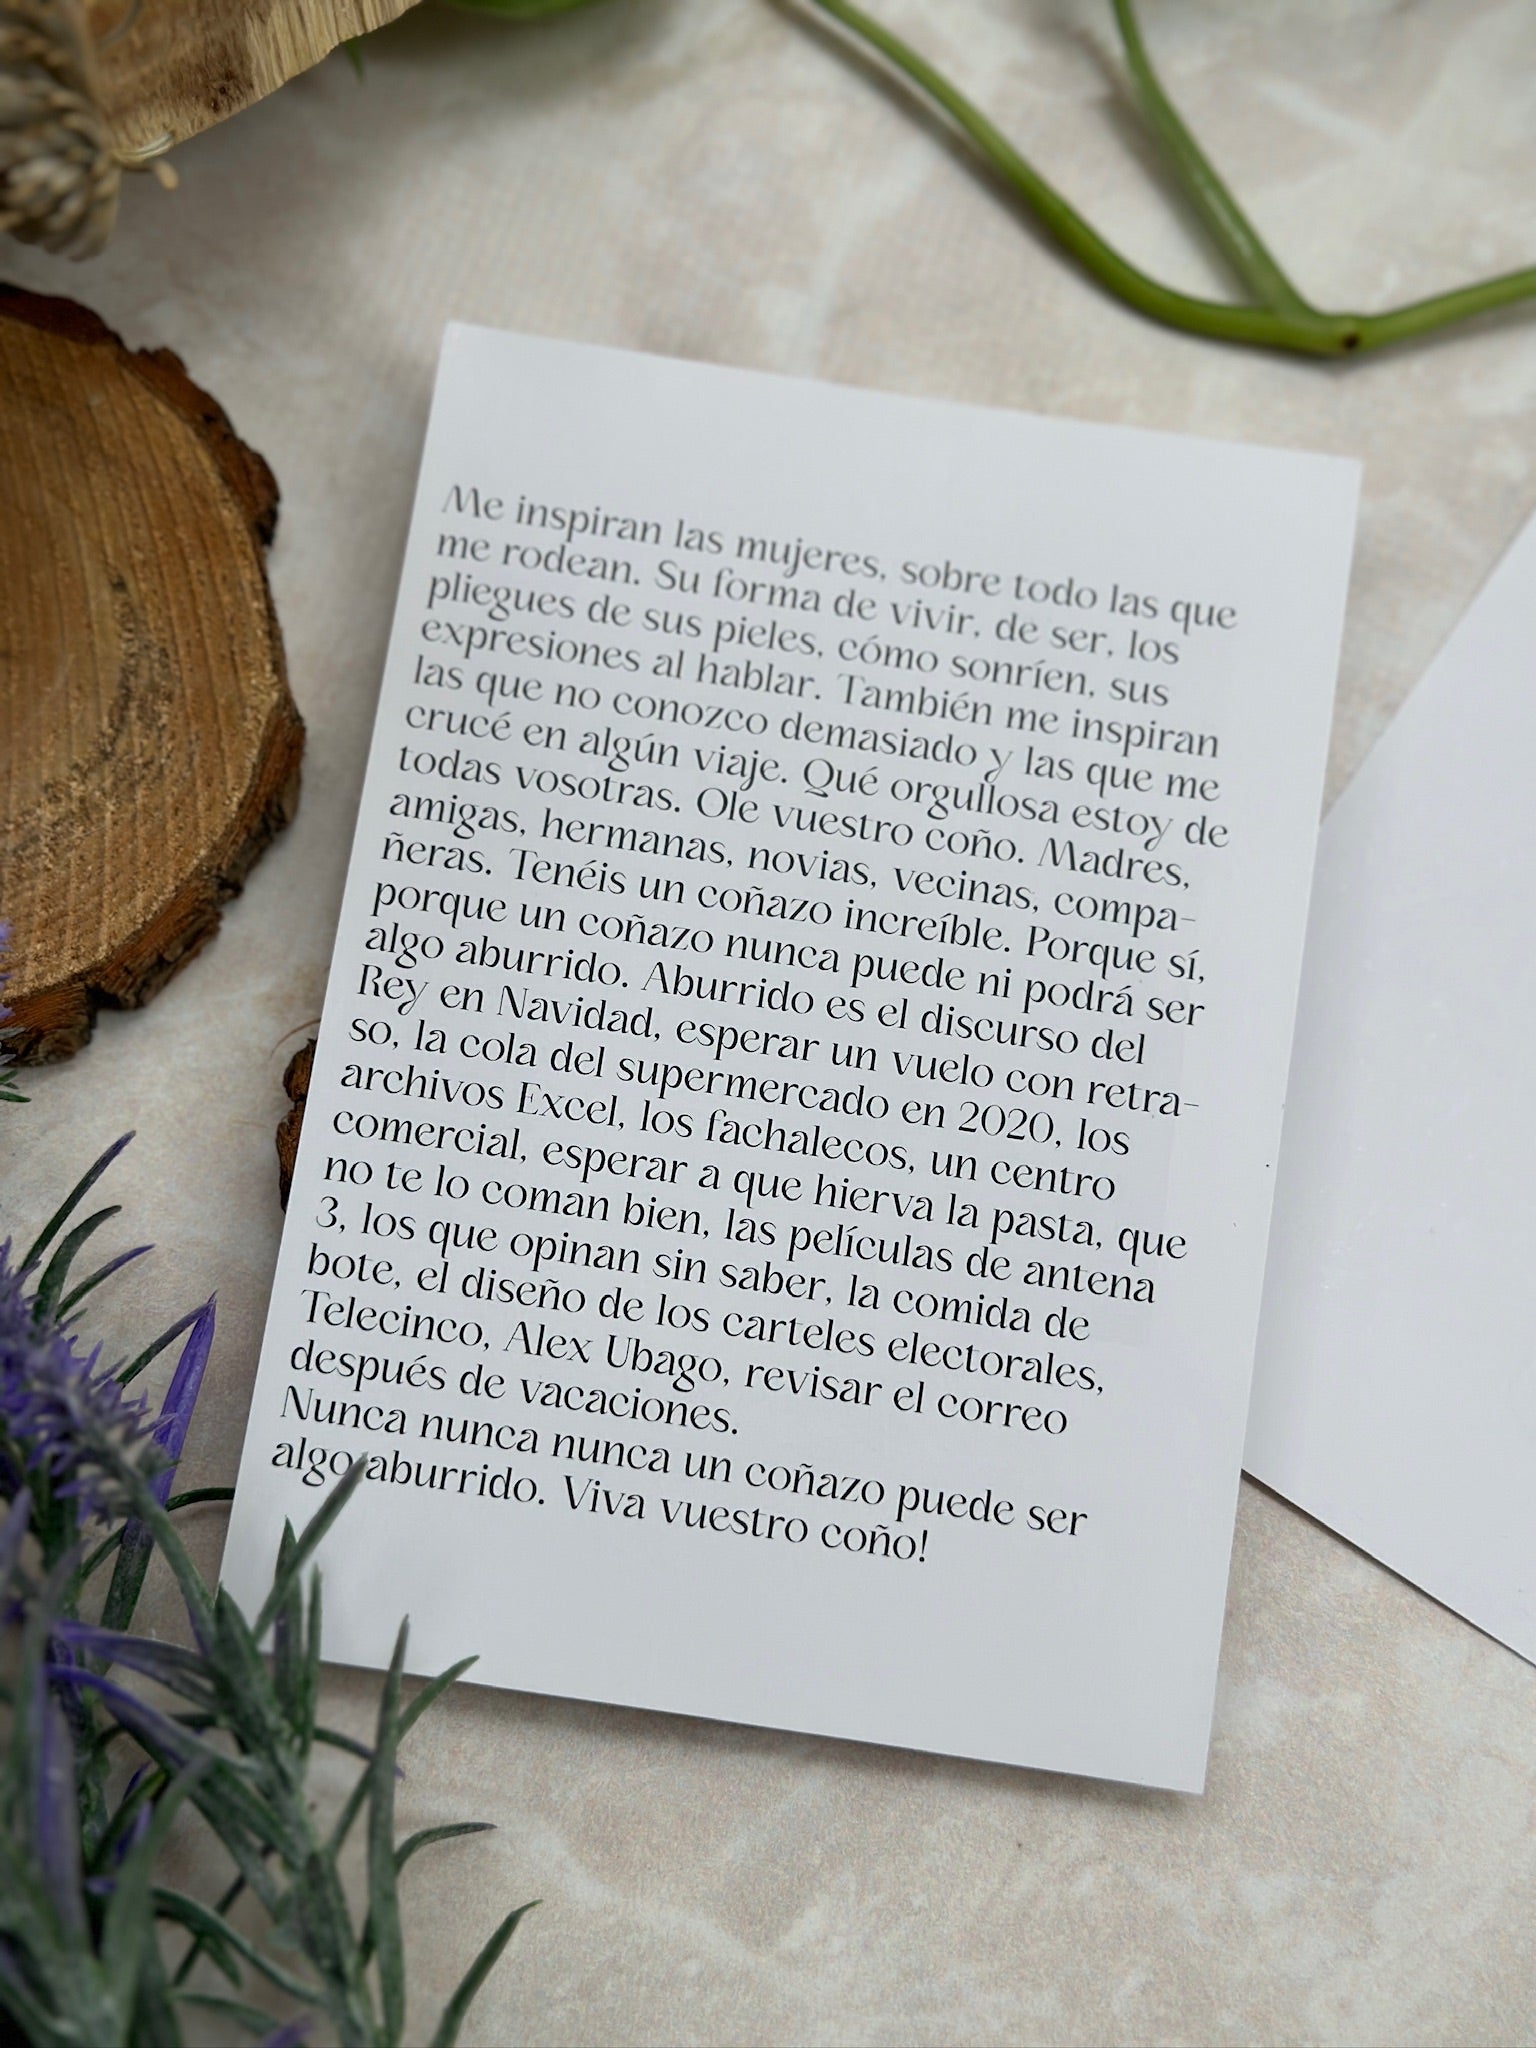 Me inspiran las mujeres, sobre todo las que
me rodean. Su forma de vivir, de ser, los
pliegues de sus pieles, cómo sonríen, sus
expresiones al hablar. También me inspiran
las que no conozco demasiado y las que me
crucé en algún viaje. Qué orgullosa estoy de
todas vosotras. Ole vuestro coño. Madres,
amigas, hermanas, novias, vecinas, compa-
ñeras. Tenéis un coñazo increíble. Porque sí,
porque un coñazo nunca puede ni podrá ser
algo aburrido. Aburrido es el discurso del
Rey en Navidad, esperar un vuelo con retra-
so, la cola del supermercado en 2020, los
archivos Excel, los fachalecos, un centro
comercial, esperar a que hierva la pasta, que
no te lo coman bien, las películas de antena
3, los que opinan sin saber, la comida de
bote, el diseño de los carteles electorales,
Telecinco, Alex Ubago, revisar el correo
después de vacaciones.
Nunca nunca nunca un coñazo puede ser
algo aburrido. Viva vuestro coño!